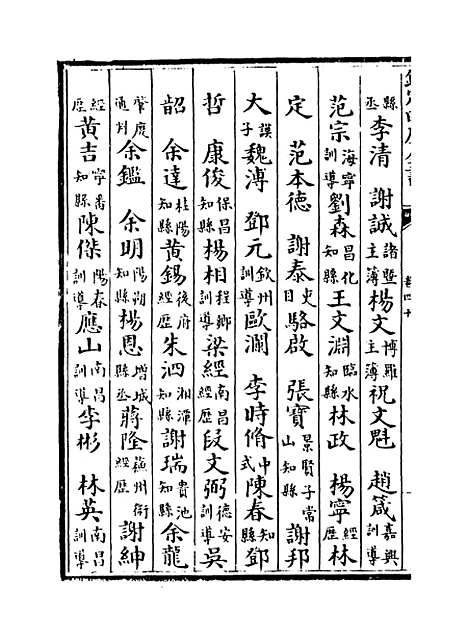 縣丞李清　謝誠諸暨主簿楊文博羅主簿祝文魁　趙箴嘉興訓導
范宗海寧訓導劉森昌化知縣王文淵臨水知縣林政　楊寧經歷林
定　范本德　謝泰吏目駱啟　張寶景賢子常山知縣謝邦
大謨子魏溥　鄧元欽州訓導歐瀾　李時脩中式陳春知縣鄧
哲　康俊保昌知縣楊相程鄉訓導梁經南昌經歷段文弼德安訓導吳
韶　余達桂陽知縣黃錫後府經歷朱泗湘潭知縣謝瑞貴池知縣余龍
肇慶通判余鑑　余明陽朔知縣楊恩增城縣丞蔣隆蘇州衛經歷謝紳
經歷黃吉寧番知縣陳傑陽春訓導應山南昌訓導李彬　林英南昌訓導